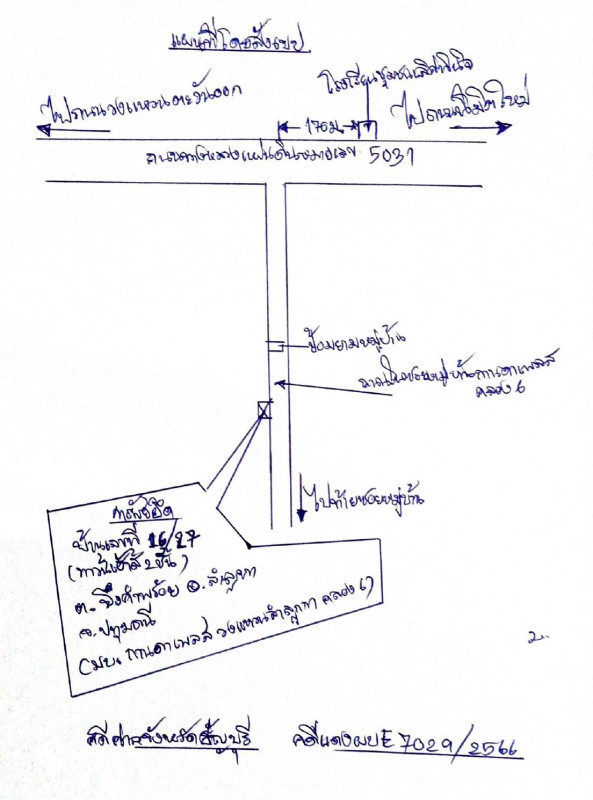 แผนที่โดยสังเขป
โรงเรียนชุมชนเลิศพินิจ
ไปถนนวงแหวนตะวันออก
ไปถนนนิมิตใหม่
176ม.
ถนนทางหลวงแผ่นดินหมายเลข 5031
ป้อมยามหมู่บ้าน
ถนนในซอยหมู่บ้านกานดาเพลส
คลอง 6
ไปท้ายซอยหมู่บ้าน
ทรัพย์ยึด
บ้านเลขที่ 16/27
(ทาวน์เฮ้าส์ 2 ชั้น)
ต. บึงคำพร้อย อ. ลำลูกกา
จ. ปทุมธานี
(มบ. กานดาเพลส วงแหวนลำลูกกา คลอง 6)
2.
คดีศาลจังหวัดธัญบุรี คดีแดง ผบE 7029/2566